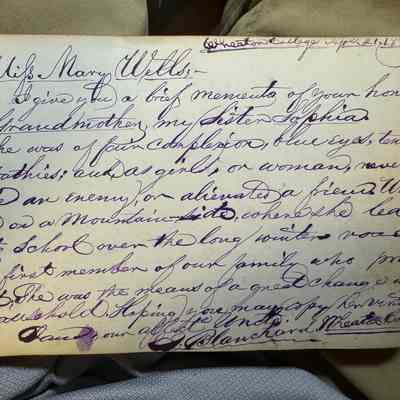 Wheaton College Sept. 21, 
Miss Mary Wells;-
I give you a brief memento of your hon
Grandmother, my Sister Sophia.
he was of fair complexion, blue eyes, ten
pathies; and, as girl, or woman, never
e an enemy, or alienated a friend. W
d on a Mountain-side, where she led
School over the long winter
first member of our family who pr
She was the means of a great change
ousehold. Hoping you may copy her
I am your affect. Uncle
J Blanchard, Wheaton Co